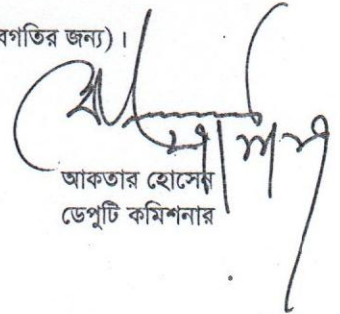 বগতির জন্য)।
আকতার হোসেন
ডেপুটি কমিশনার